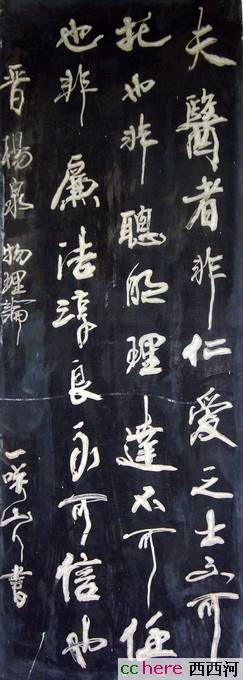 夫醫者非仁愛之士不可
托也非聰明理達不可任
也非廉洁淳良不可信也
晉楊泉物理論 一咲山人書
cchere 西西河